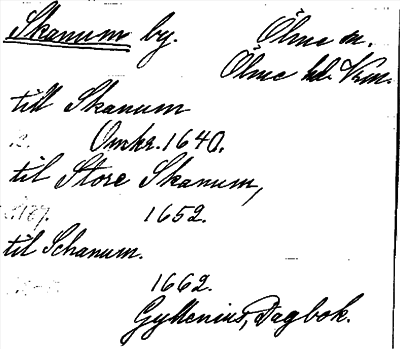 Skanum by. Ölme sn.
Ölme hd. Vrm.
till Skanum
Omkr. 1640.
til Store Skanum,
1652.
til Schanum.
1662.
Gyllenius, Dagbok.